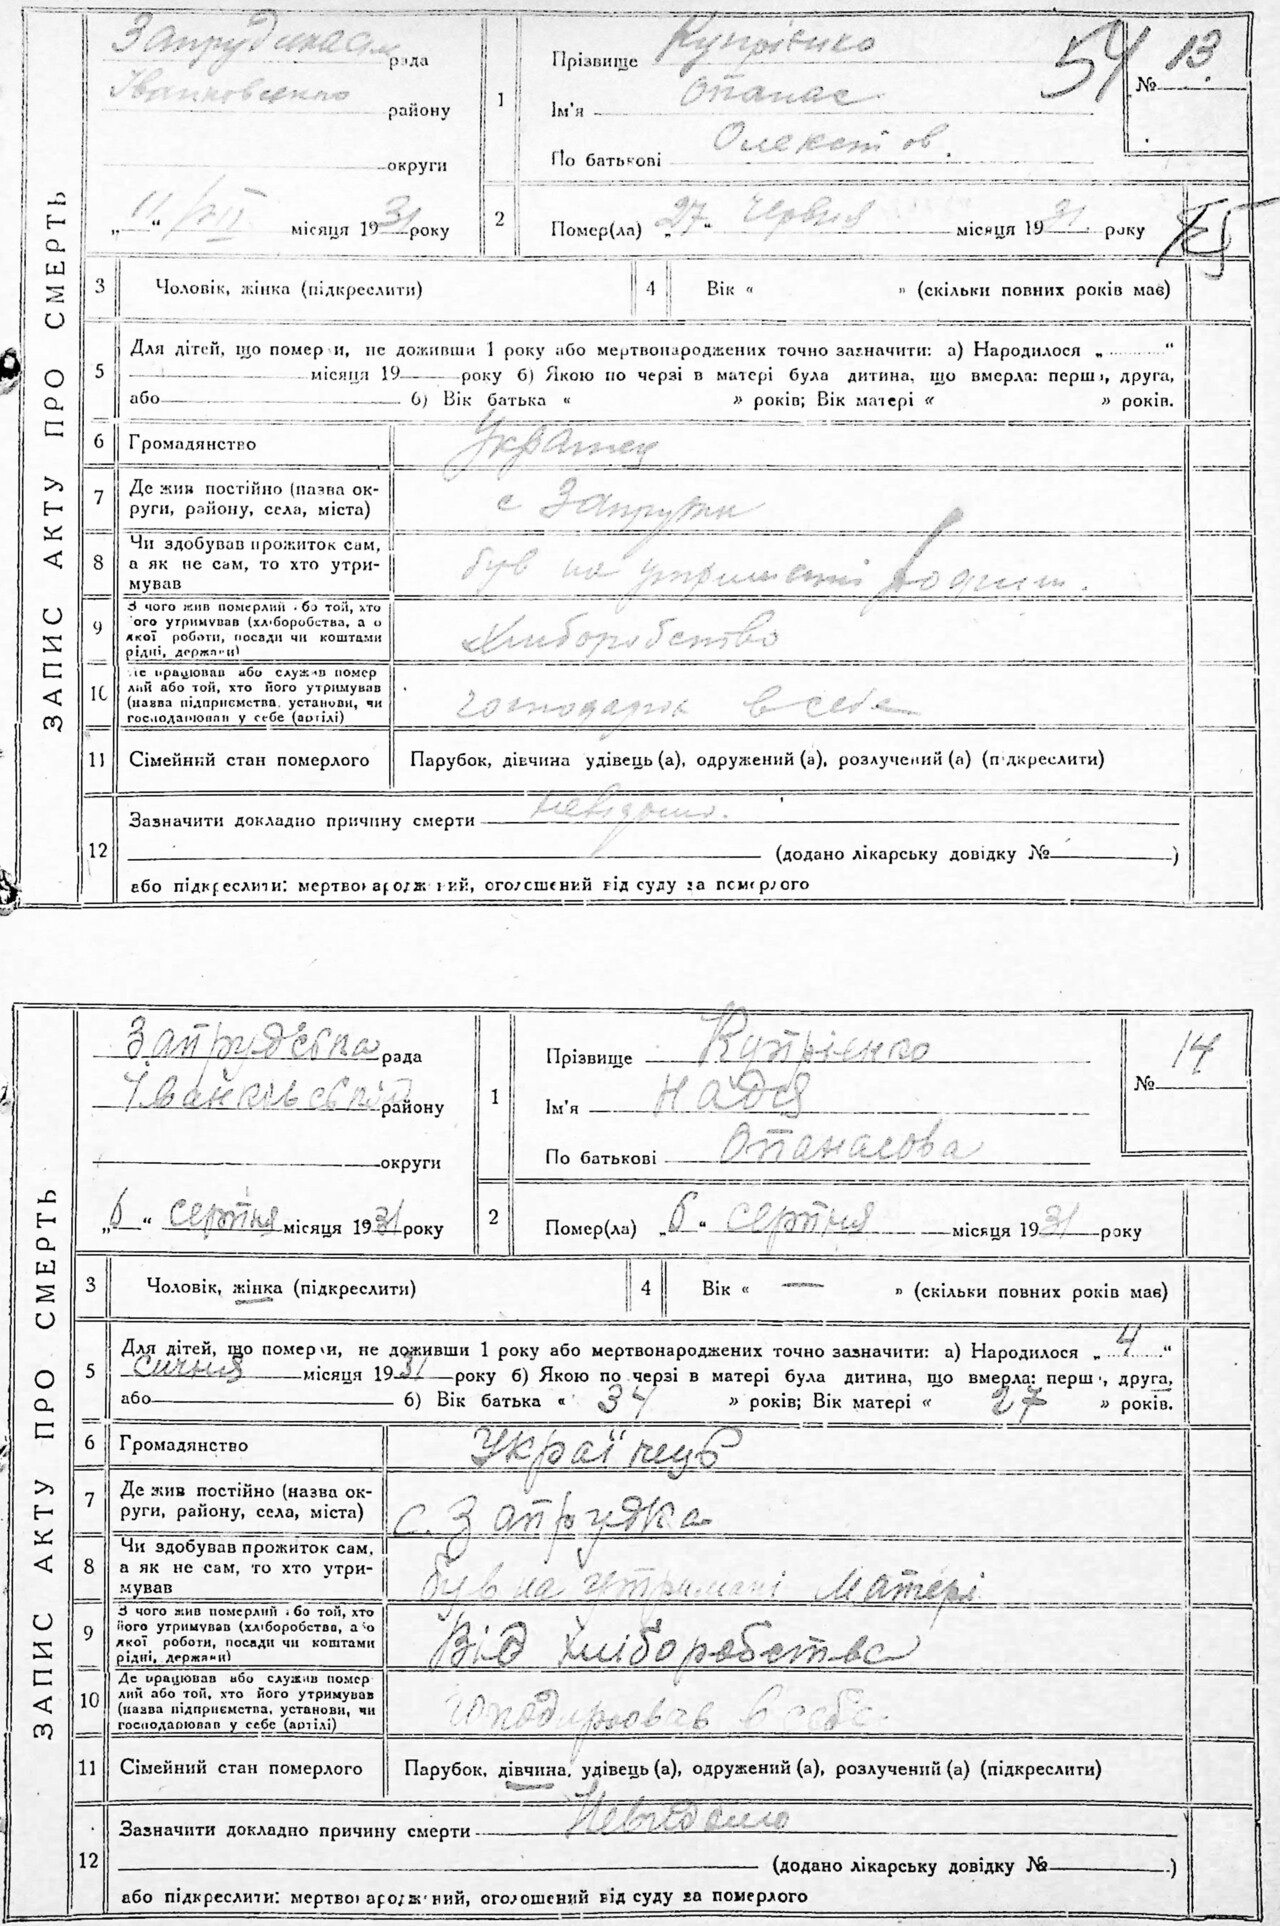 ЗАПИС АКТУ ПРО СМЕРТЬ
рада
району
округи
„ “ місяця 1931 року
1
Прізвище Купрієнко
Ім'я Опанас
По батькові
54
№ 13
2
Помер(ла) „27“ червня місяця 1931 року
3 Чоловік, жінка (підкреслити)
4 Вік « » (скільки повних років має)
5
Для дітей, що померли, не доживши 1 року або мертвонароджених точно зазначити: а) Народилося „ “
місяця 19 року б) Якою по черзі в матері була дитина, що вмерла: перша, друга,
або б) Вік батька « » років; Вік матері « » років.
6 Громадянство Українец
7 Де жив постійно (назва ок-
руги, району, села, міста)
с Запрудка
8 Чи здобував прожиток сам,
а як не сам, то хто утри-
мував
був на утриманні
9 З чого жив померлий або той, хто
його утримував (хліборобства, або
якої роботи, посади чи коштами
рідні, держави)
Хліборобство
10 Де працював або служив помер
лий або той, хто його утримував
(назва підприємства, установи, чи
господарював у себе (артілі)
в себе
11 Сімейний стан померлого Парубок, дівчина удівець (а), одружений (а), розлучений (а) (підкреслити)
12
Зазначити докладно причину смерти невідомо.
(додано лікарську довідку № )
або підкреслити: мертвонароджений, оголошений від суду за померлого
ЗАПИС АКТУ ПРО СМЕРТЬ
Запрудська рада
Іванківський району
округи
„6“ серпня місяця 1931 року
1
Прізвище Купрієнко
Ім'я Надія
По батькові Опанасова
№ 14
2
Помер(ла) „6“ серпня місяця 1931 року
3 Чоловік, жінка (підкреслити)
4 Вік « — » (скільки повних років має)
5
Для дітей, що померли, не доживши 1 року або мертвонароджених точно зазначити: а) Народилося „4“
січня місяця 1931 року б) Якою по черзі в матері була дитина, що вмерла: перша, друга,
або б) Вік батька « 34 » років; Вік матері « 27 » років.
6 Громадянство Українець
7 Де жив постійно (назва ок-
руги, району, села, міста)
с. Запрудка
8 Чи здобував прожиток сам,
а як не сам, то хто утри-
мував
був на утримані матері
9 З чого жив померлий або той, хто
його утримував (хліборобства, або
якої роботи, посади чи коштами
рідні, держави)
Від хліборобства
10 Де працював або служив помер
лий або той, хто його утримував
(назва підприємства, установи, чи
господарював у себе (артілі)
в себе.
11 Сімейний стан померлого Парубок, дівчина, удівець (а), одружений (а), розлучений (а) (підкреслити)
12
Зазначити докладно причину смерти Невідомо
(додано лікарську довідку № )
або підкреслити: мертвонароджений, оголошений від суду за померлого